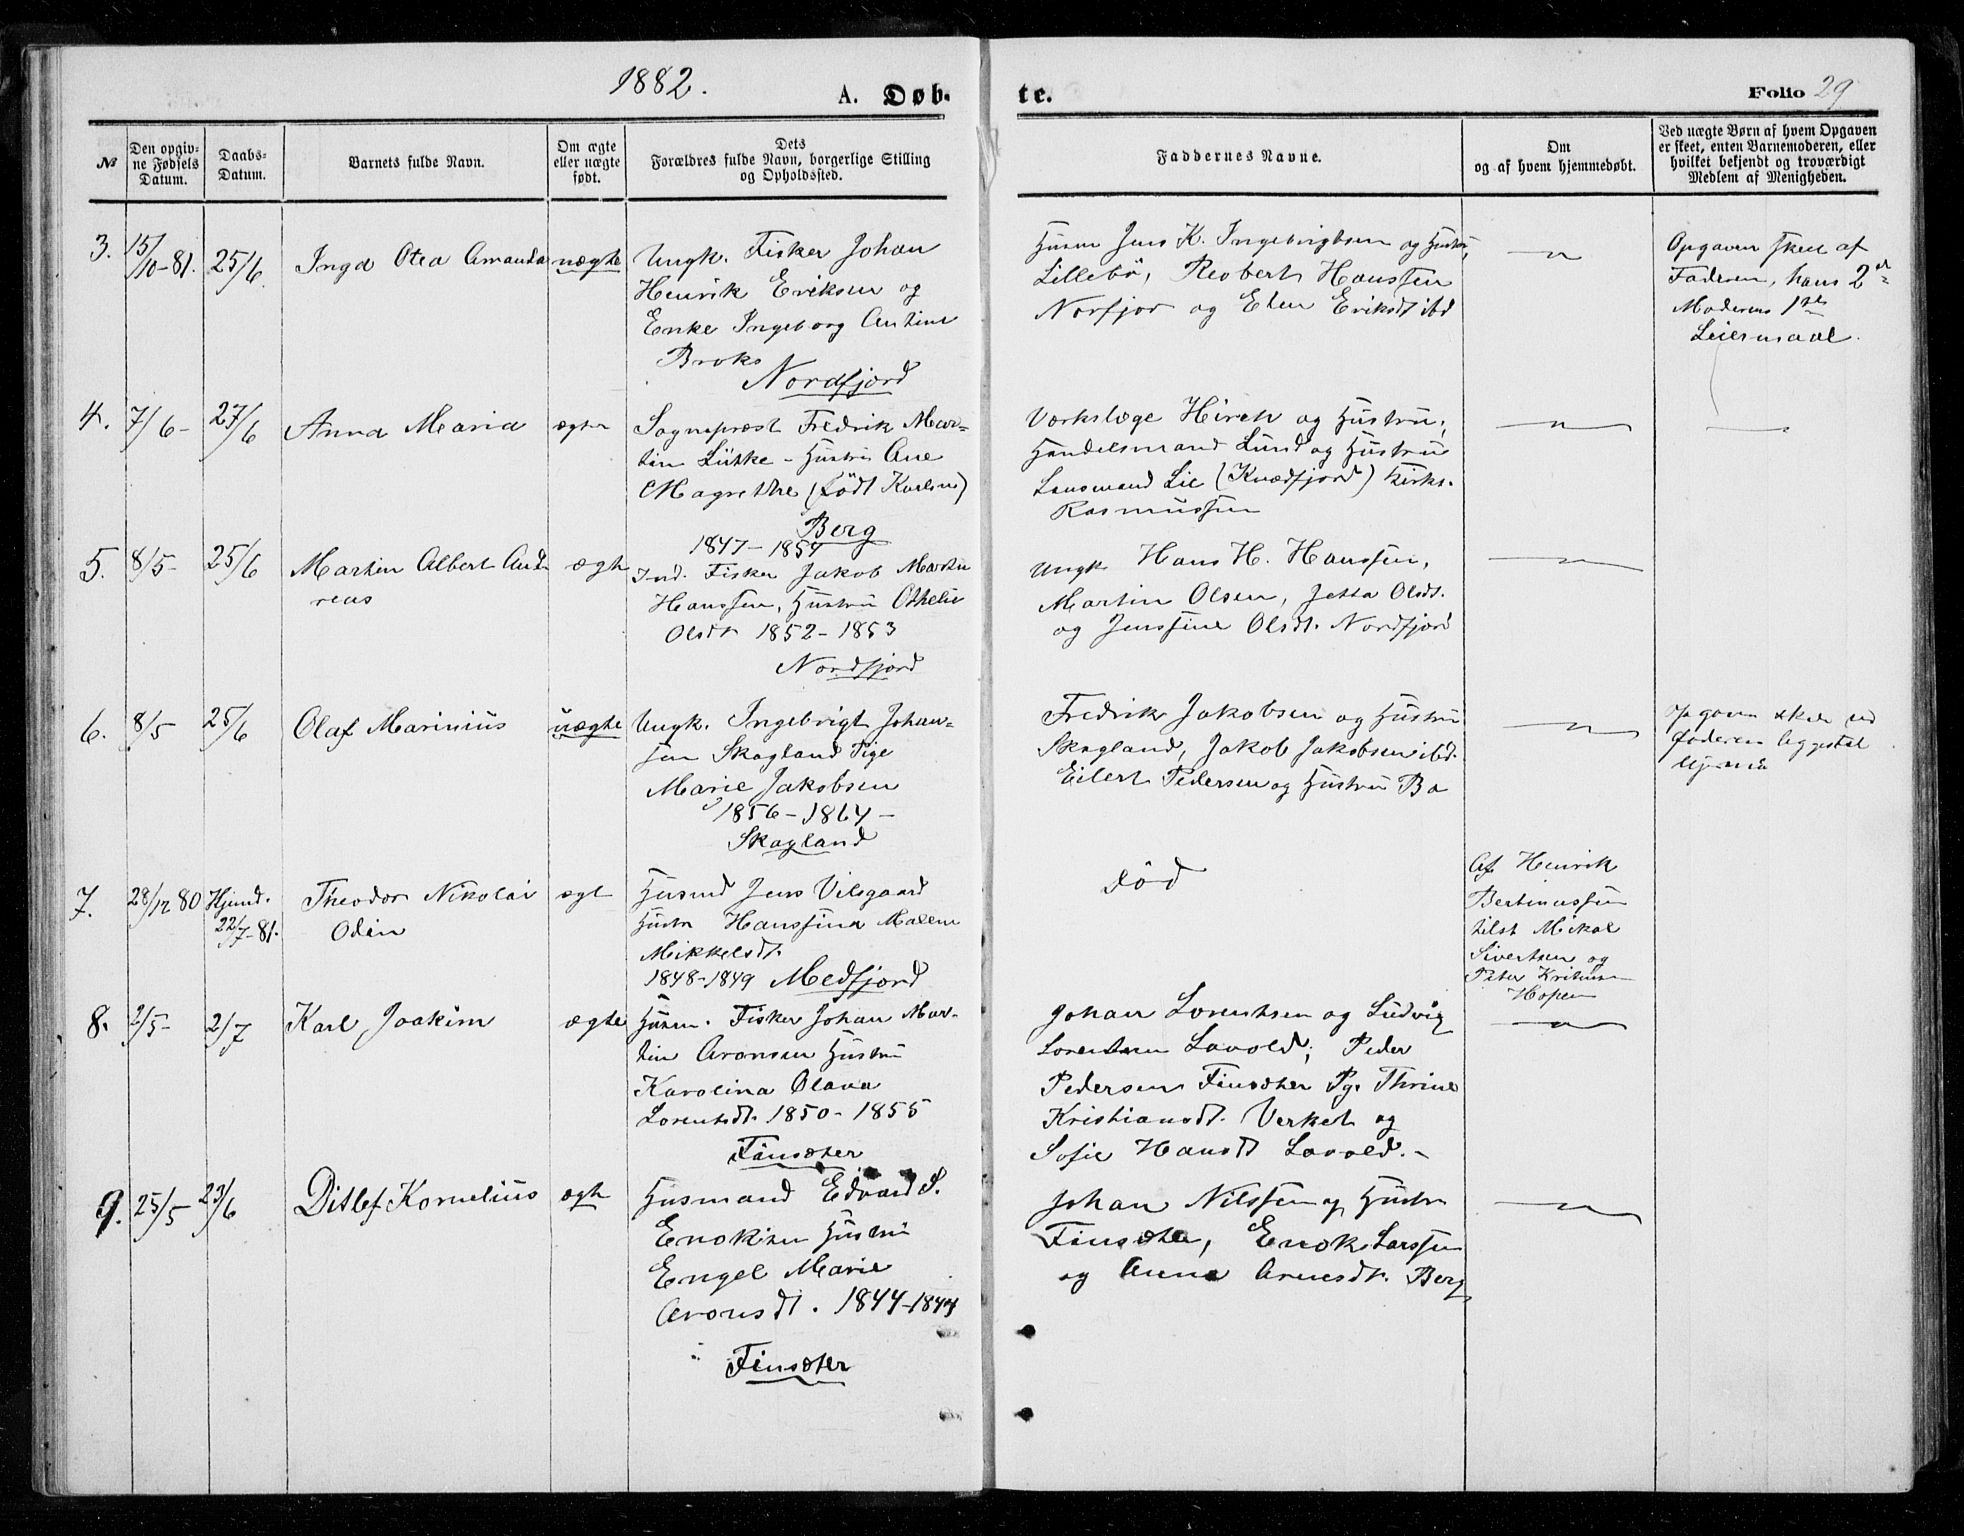 1882.
A. Døb-
te.
Folio 29
№
Den opgiv-
ne Fødsels
Datum.
Daabs-
Datum.
Barnets fulde Navn.
Om ægte
eller uægte
født.
Dets
Forældres fulde Navn, borgerlige Stilling
og Opholdssted.
Faddernes Navne.
Om
og af hvem hjemmedøbt.
Ved uægte Børn af hvem Opgaven
er skeet, enten Barnemoderen, eller
hvilket bekjendt og troværdigt
Medlem af Menigheden.
3.
15/10-81.
25/6.
Inga Otea Amanda
uægte
Ungk. Fisker Johan
Henrik Eriksen og
Enke Ingeborg Antine
Broks
Nordfjord
Husm Jens K. Ingebrigtsen og Hustru,
Lillebö, Reobert Hanssen
Norfjor og Elen Eriksdt ibd
Opgaven skeet af
Faderen, hans 2d
Moderens 1ste
Leiermaal.
4.
7/6-
27/6
Anna Maria
ægte
Sognepræst Fredrik Mar-
tin Lütke - Hustru Ane
Magrethe (født Karlsen)
Berg
1847-1854
Værkslæge Hirch og Hustru,
Handelsmand Lund og Hustru
Lensmand Lie (Kvædfjord) Kirks.
Rasmussen
5.
8/5-
25/6
Martin Albert And
reas
ægte
Ind. Fisker Jakob Martin
Hanssen, Hustru Othelie
Olsdt 1852-1853
Nordfjord
Ungk Hans H. Hanssen,
Martin Olsen, Jetta Olsdt.
og Jenssine Olsdt. Nordfjord
6.
8/5
25/6
Olaf Marinius
uægte
Ungk. Ingebrigt Johan-
sen Skagland Pige
Marie Jakobsen
1856-1864-
Skagland
Fredrik Jakobsen og Hustru
Skagland, Jakob Jakobsen ibd.
Eilert Pedersen og Hustru Bo
Opgaven skede ved
faderen
7.
28/12 80
Hjemd.
22/7-81.
Theodor Nikolai
Odin
ægt
Husmd Jens Vilsgaard
Hustr Hanssina Malene
Mikkelsdt.
1848-1849 Medfjord
Død
Af Henrik
Bertinussen
tilst Mikal
Sivertsen og
Peter
Hopen
8.
2/5-
2/7
Karl Joakim
ægte
Husm. Fisker Johan Mar-
tin Aronsen Hustru
Karolina Olava
Lorentsdt. 1850-1855
Finsæter
Johan Lorentsen og Ludvig
Lorentsen Lavold; Peder
Pedersen Finsæter Pg. Thrine
Kristiansdt. Verket og
Sofie Hansdt Lavold.-
9.
25/5
23/6
Ditlef Kornelius
ægte
Husmand Edvard S.
Enoksen Hustru
Engel Marie
Aronsdt. 1844-1844
Finsæter
Johan Nilssen og Hustru
Finsæter, Enok Larssen
og Anna Arnesdt. Berg